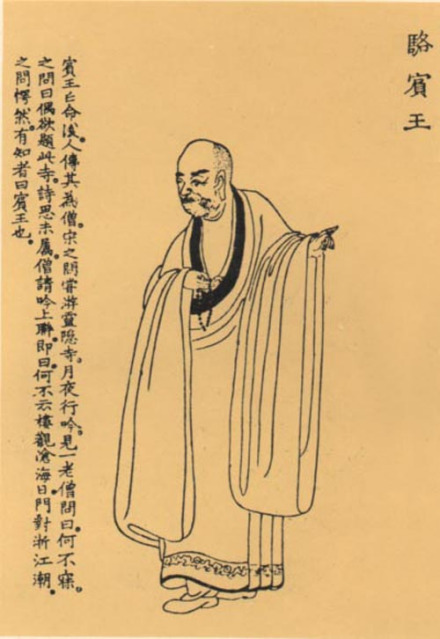 駱賓王
賓王亡命後。人傳其為僧。宋之問嘗游靈隱寺月夜行吟。見一老僧問曰。何不寐。
之問曰偶欲題此寺。詩思未屬。僧請吟上聯。即曰。何不云樓觀滄海日。門對浙江潮。
之問愕然。有知者曰賓王也。